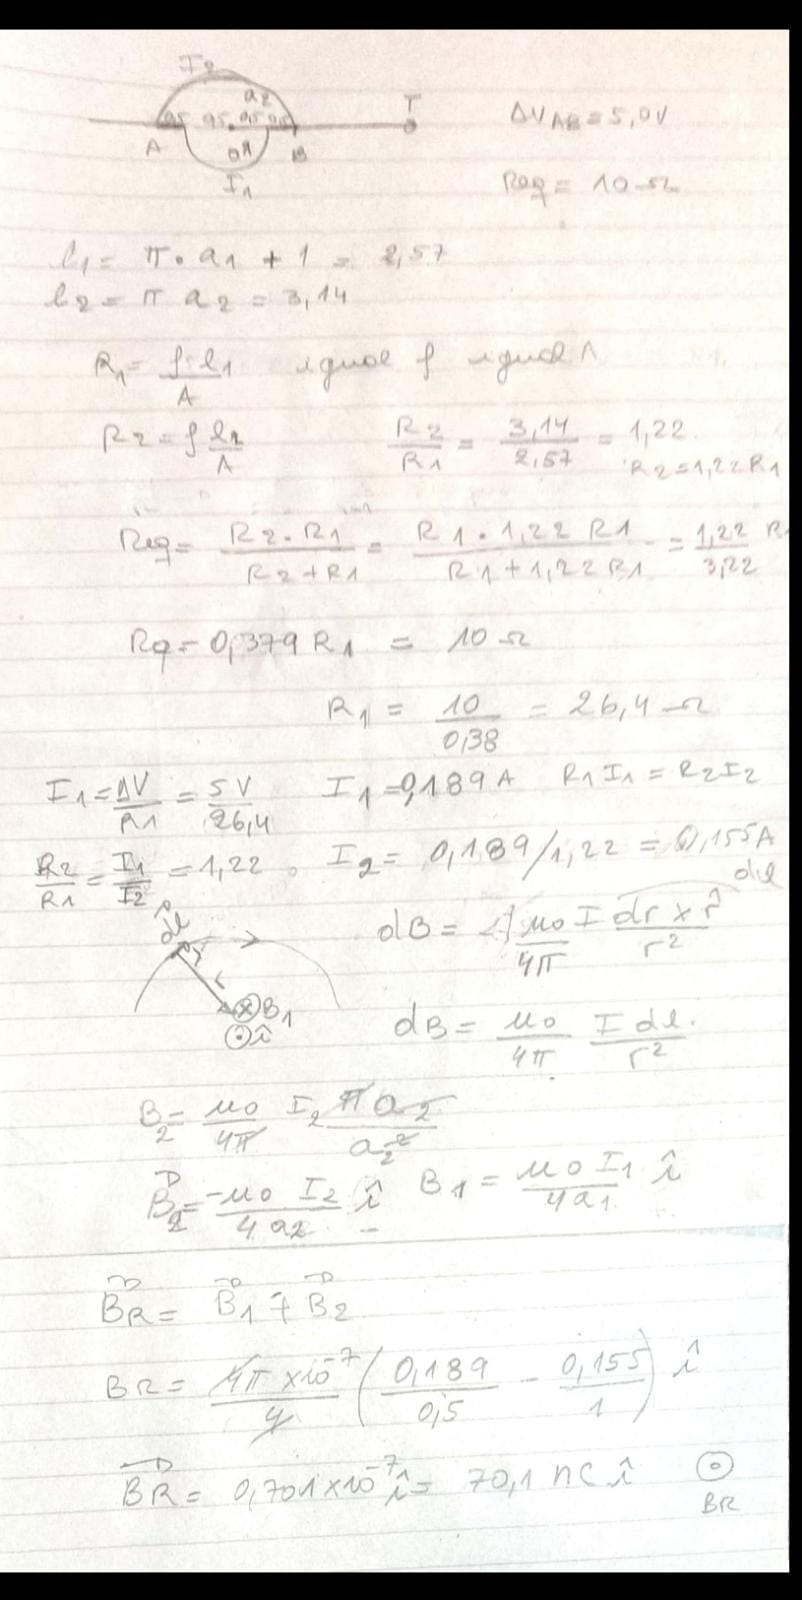 I2
a2
T
0,5 0,5 0,5 0,5
ΔV AB = 5,0V
A a1 B
I1
Req = 10 Ω
l1 = π . a1 + 1 = 2,57
l2 = π a2 = 3,14
R1 = ρ l1 / A igual ρ igual A
R2 = ρ l2 / A R2 / R1 = 3,14 / 2,57 = 1,22
R2 = 1,22 R1
Req = R2 . R1 / R2 + R1 = R1 . 1,22 R1 / R1 + 1,22 R1 = 1,22 / 3,22 R1
Rq = 0,379 R1 = 10 Ω
R1 = 10 / 0,38 = 26,4 Ω
I1 = ΔV / R1 = 5V / 26,4 I1 = 0,189 A R1 I1 = R2 I2
R2 / R1 = I1 / I2 = 1,22 . I2 = 0,189 / 1,22 = 0,155 A
dl
dl dB = μo / 4π I dr x r̂ / r²
r
B1
î
dB = μo / 4π I dl . / r²
B2 = μo / 4π I2 π a2 / a2²
B2 = -μo I2 / 4 a2 î B1 = μo I1 / 4 a1 î
BR = B1 + B2
BR = 4π x10⁻⁷ / 4 ( 0,189 / 0,5 - 0,155 / 1 ) î
BR = 0,701 x 10⁻⁷ î = 70,1 nC î
BR